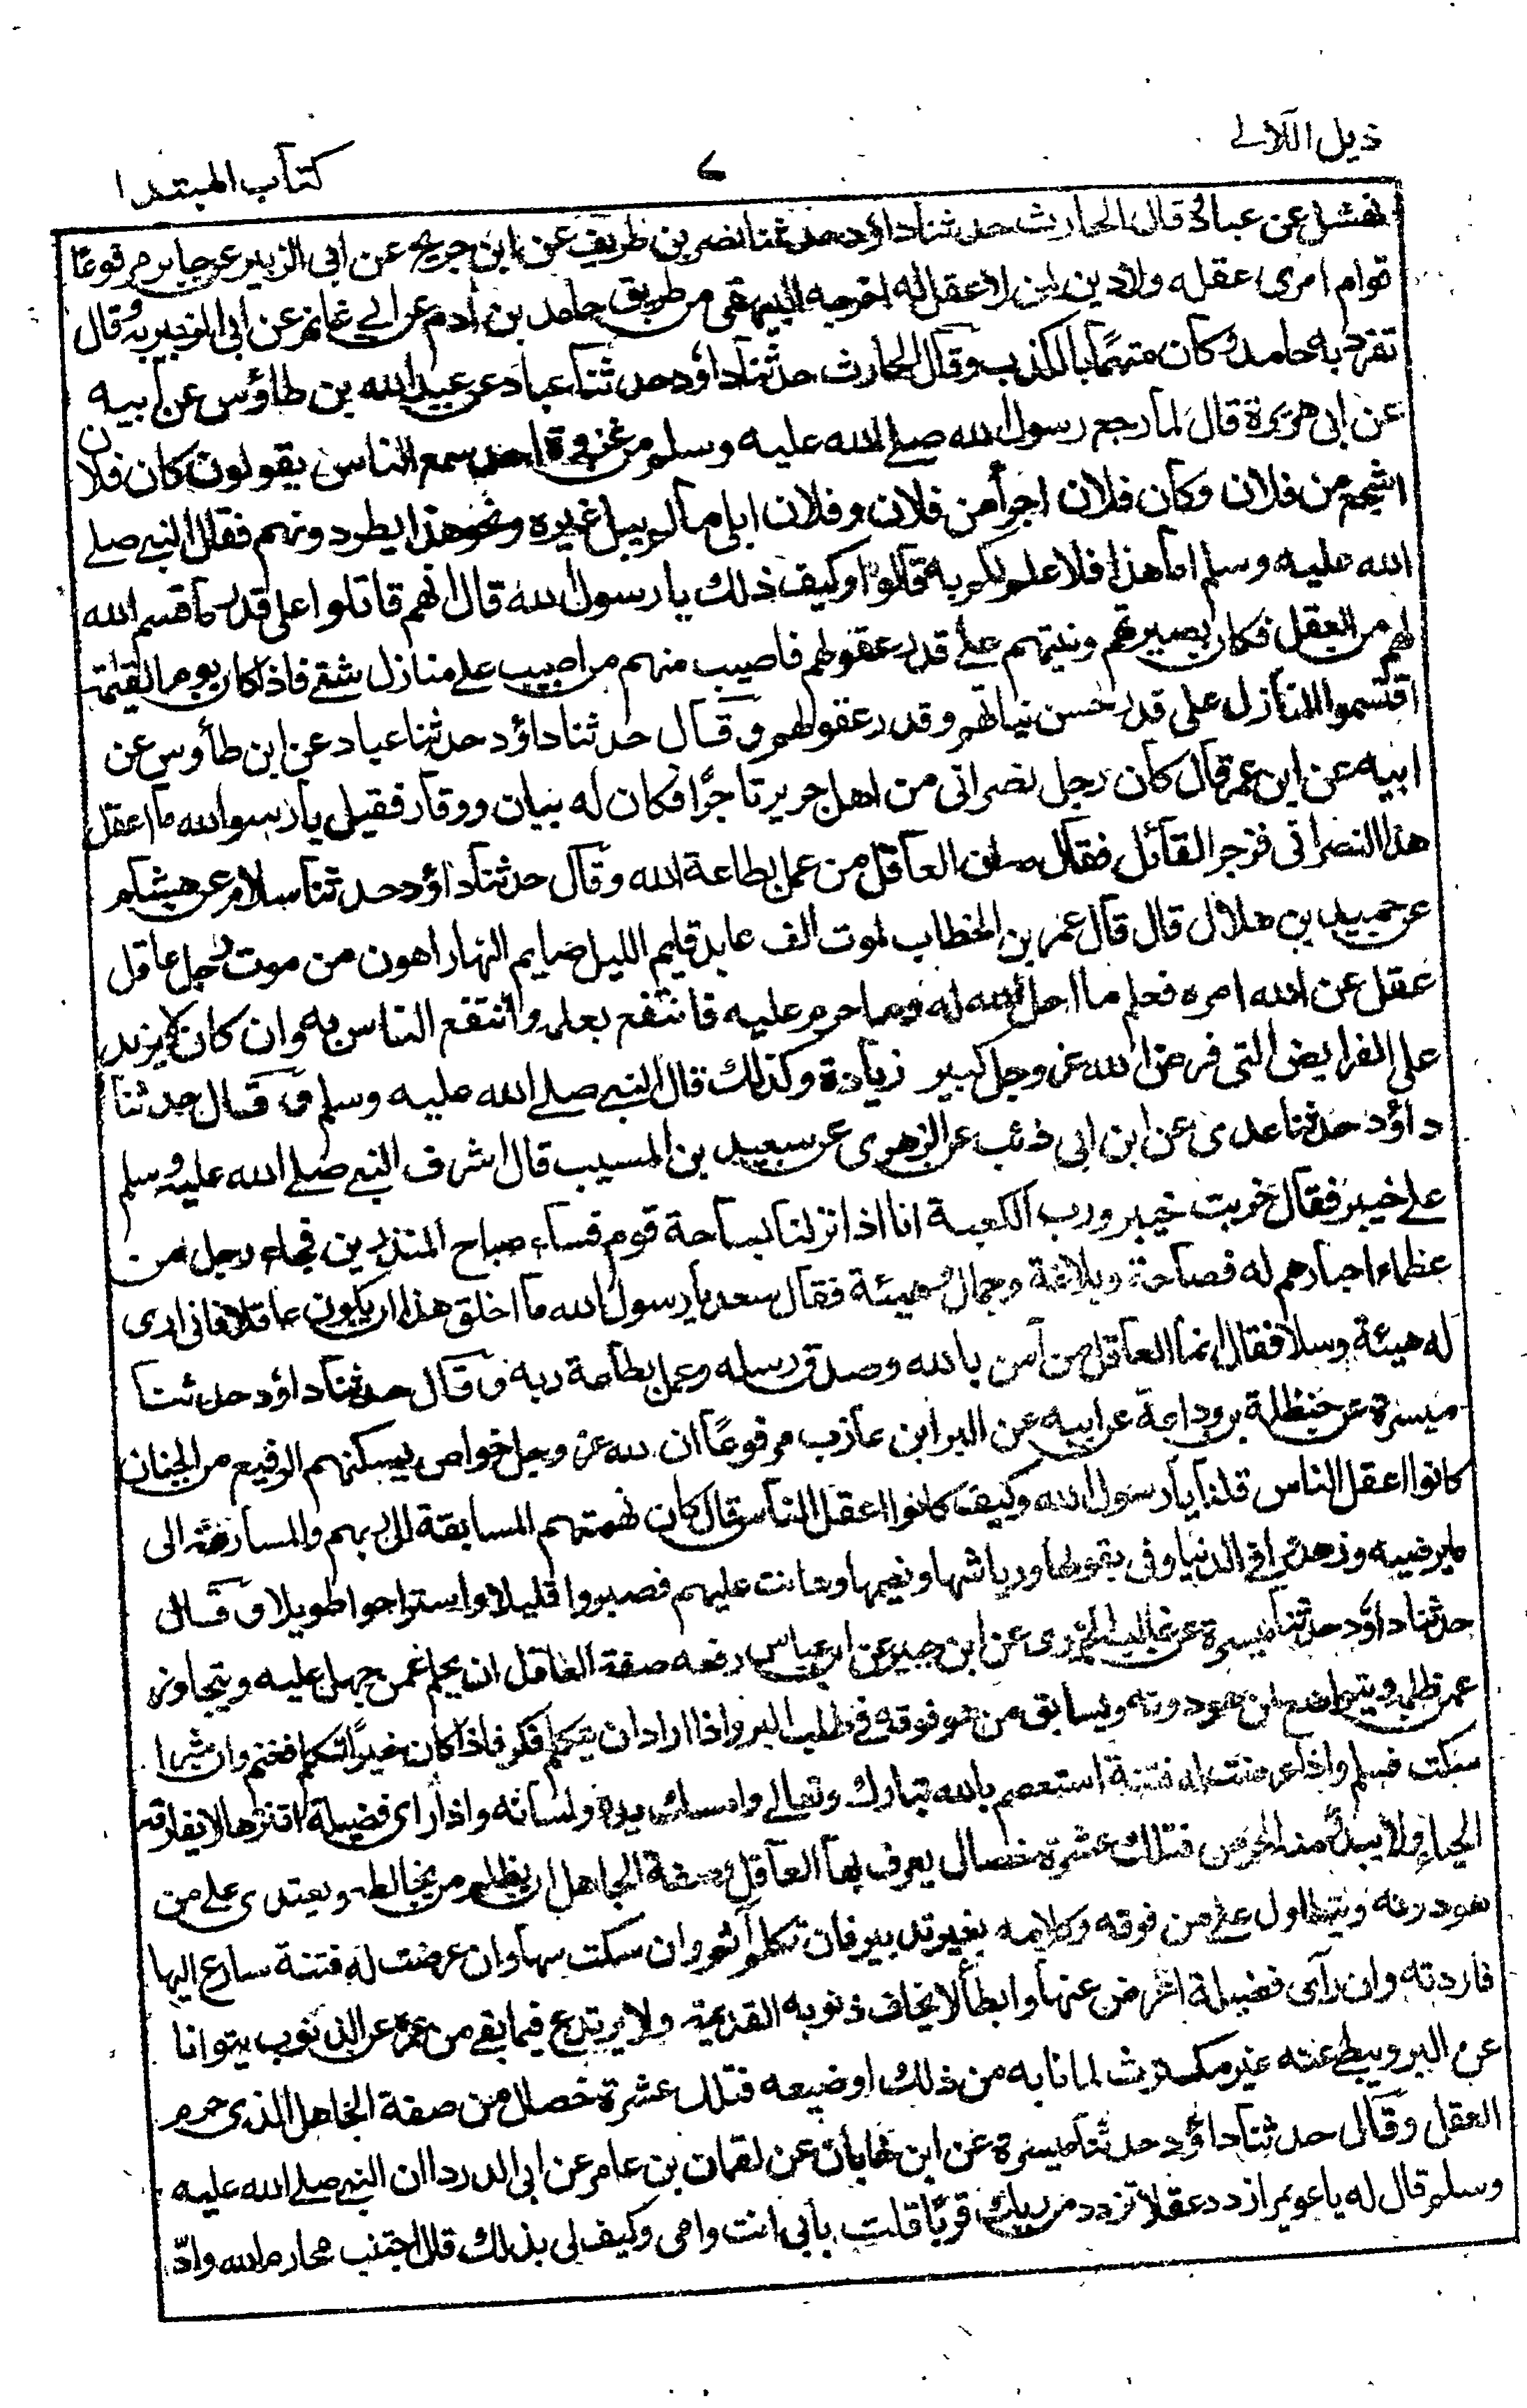 ذيل اللآلے
٧
كتاب المبتدا
عن عباد قال الحارث حدثنا داؤد حدثنا نصر بن طريف عن ابن جريج عن ابى الزبير عن جابر مرفوعًا
قوام امرى عقله ولا دين لمن لا عقل له اخرجه البيهقى من طريق حامد بن آدم عن ابے غانم عن ابى الزبير به وقال
تفرد به حامد وكان متهمًا بالكذب وقال الحارث حدثنا داؤد حدثنا عباد عن عبد الله بن طاؤس عن ابيه
عن ابى هريرة قال لما رجع رسول الله صلے الله عليه وسلم من غزوة احد سمع الناس يقولون كان فلان
اشجع من فلان وكان فلان اجرأ من فلان وفلان ابلى ما لم يبل غيره ونحو هذا يطرد ونهم فقال النبے صلے
الله عليه وسلم اما هذا فلا علم لكم به قالوا وكيف ذلك يا رسول الله قال انهم قاتلوا على قدر ما قسم الله
لهم من العقل فكان بصيرتهم ونيتهم علے قدر عقولهم فاصيب منهم من اصيب علے منازل شتے فاذا كان يوم القيمة
اقتسموا المنازل على قدر حسن نياتهم وقدر عقولهم وقال حدثنا داؤد حدثنا عباد عن ابن طاوس عن
ابيه عن ابن عمر قال كان رجل نصرانى من اهل جرير تاجرًا فكان له بيان ووقار فقيل يا رسول الله ما اعقل
هذا النصرانى فزجر القائل فقال مه ان العاقل من عمل بطاعة الله وقال حدثنا داؤد حدثنا سلام عن هشام
عن حميد بن هلال قال قال عمر بن الخطاب لموت الف عابد قايم الليل صايم النهار اهون من موت رجل عاقل
عقل عن الله امره فعلم ما احل الله له وما حرم عليه فانتفع بعلمه وانتفع الناس به وان كان لا يزيد
على الفرايض التى فرض الله عز وجل كبير زيادة وكذلك قال النبے صلے الله عليه وسلم وقال حدثنا
داؤد حدثنا عدى عن ابن ابى ذئب عن الزهرى عن سعيد بن المسيب قال اشرف النبے صلے الله عليه وسلم
علے خيبر فقال خربت خيبر ورب الكعبة انا اذا نزلنا بساحة قوم فساء صباح المنذرين فجاء رجل من
عظماء احبارهم له فصاحة وبلاغة وجمال وهيئة فقال سعد يا رسول الله ما اخلق هذا ان يكون عاقلا فانى ارى
له هيئة وسلا فقال انما العاقل من آمن بالله وصدق رسله وعمل بطاعة ربه وقال حدثنا داؤد حدثنا
ميسرة عن حنظلة بن وداعة عن ابيه عن البرا بن عازب مرفوعًا ان لله عز وجل خواص يسكنهم الرفيع من الجنان
كانوا اعقل الناس قلنا يا رسول الله وكيف كانوا اعقل الناس قال كان نهمتهم المسابقة الى ربهم والمسارعة الى
ما يرضيه وزهدوا فى الدنيا وفى فضولها ورياشها ونعيمها وهانت عليهم فصبروا قليلا واستراحوا طويلا وقال
حدثنا داؤد حدثنا ميسرة عن غالب الجزرى عن ابن جبير عن ابن عباس رفعه صفة العاقل ان يحلم عمن جهل عليه ويتجاوز
عمن ظلمه ويتواضع لمن هو دونه ويسابق من هو فوقه فے طلب البر واذا اراد ان يتكلم فكر فاذا كان خيرًا تكلم فغنم وان شرا
سكت فسلم واذا عرضت له فتنة استعصم بالله تبارك وتعالے وامسك يده ولسانه واذا راى فضيلة اقتنزها لا يفارقه
الحياء ولا يبدأ منه الحرص فتلك عشرة خصال يعرف بها العاقل وصفة الجاهل ان يظلم من يخالطه ويعتدى علے من
هو دونه ويتطاول علے من فوقه وكلامه بغير تدبير فان تكلم آثم وان سكت سها وان عرضت له فتنة سارع اليها
فاردته وان رآى فضيلة اعرض عنها وابطأ لا يخاف ذنوبه القديمة ولا يرتدع فيما بقے من عمره عن الذنوب يتوانا
عن البر ويبطى عنه غير مكترث لما نابه من ذلك او ضيعه فتلك عشرة خصال من صفة الجاهل الذى حرم
العقل وقال حدثنا داؤد حدثنا ميسرة عن ابن جابان عن لقمان بن عامر عن ابى الدردا ان النبے صلے الله عليه
وسلم قال له يا عويمر ازدد عقلا تزدد من ربك قربًا قلت بأبى انت وامى وكيف لى بذلك قال اجتنب محارم الله وادّ